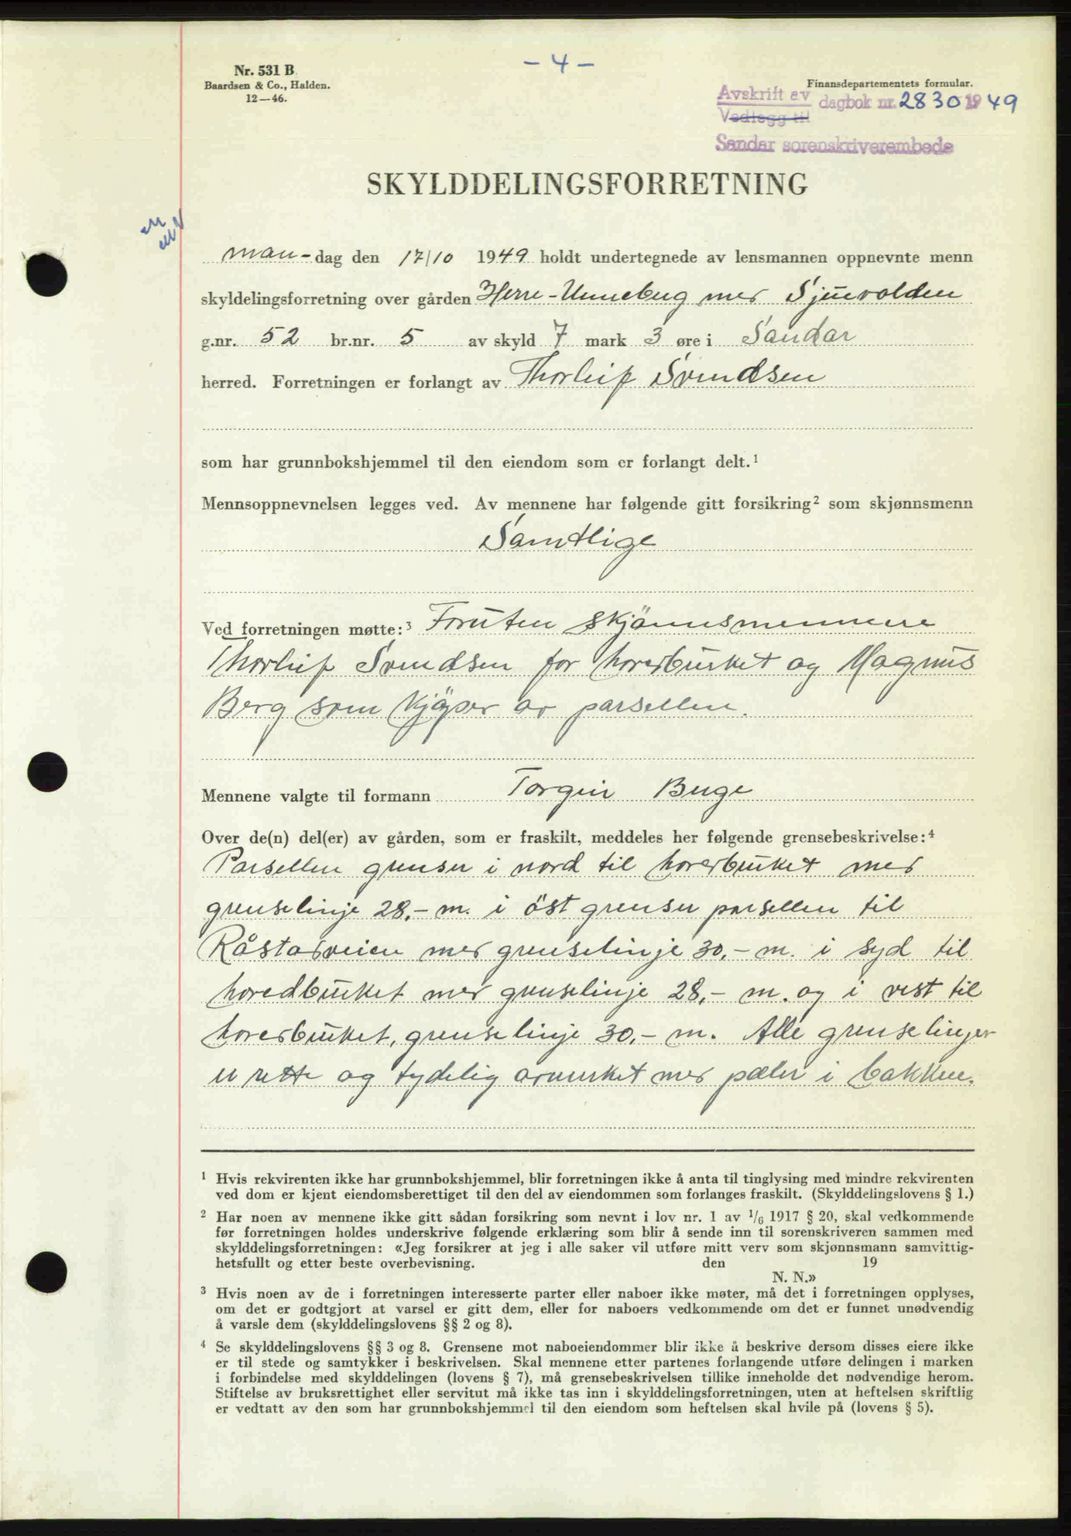 - 4 -
Nr. 531 B
Baardsen & Co., Halden.
12—46.
Finansdepartementets formular.
Avskrift av dagbok nr. 2830 1949
Vedlegg til
Sandar sorenskriverembede
SKYLDDELINGSFORRETNING
man-dag den 17/10 1949 holdt undertegnede av lensmannen oppnevnte menn
skyldelingsforretning over gården Herre-Unneberg med Sjuevolden
g.nr. 52 br.nr. 5 av skyld 7 mark 3 øre i Sandar
herred. Forretningen er forlangt av Thorleif Svendsen
som har grunnbokshjemmel til den eiendom som er forlangt delt.¹
Mennsoppnevnelsen legges ved. Av mennene har følgende gitt forsikring² som skjønnsmenn
Samtlige
Ved forretningen møtte:³ Foruten skjönnsmennene
Thorleif Svendsen for hovedbruket og Magnus
Berg som kjöper av parsellen.
Mennene valgte til formann Torgeir Buge
Over de(n) del(er) av gården, som er fraskilt, meddeles her følgende grensebeskrivelse:⁴
Parsellen grenser i nord til hovedbruket med
grenselinje 28,- m. i öst grenser parsellen til
Råstadveien med grenselinje 30,- m. i syd til
hovedbruket med grenselinje 28,- m. og i vest til
hovedbruket, grenselinje 30,- m. Alle grenselinjer
er rette og tydelig avmerket med pæler i bakken.
¹ Hvis rekvirenten ikke har grunnbokshjemmel, blir forretningen ikke å anta til tinglysing med mindre rekvirenten
ved dom er kjent eiendomsberettiget til den del av eiendommen som forlanges fraskilt. (Skylddelingslovens § 1.)
² Har noen av mennene ikke gitt sådan forsikring som nevnt i lov nr. 1 av 1/6 1917 § 20, skal vedkommende
før forretningen holdes underskrive følgende erklæring som blir å sende inn til sorenskriveren sammen med
skylddelingsforretningen: «Jeg forsikrer at jeg i alle saker vil utføre mitt verv som skjønnsmann samvittig-
hetsfullt og etter beste overbevisning. den 19
N. N.»
³ Hvis noen av de i forretningen interesserte parter eller naboer ikke møter, må det i forretningen opplyses,
om det er godtgjort at varsel er gitt dem, eller for naboers vedkommende om det er funnet unødvendig
å varsle dem (skylddelingslovens §§ 2 og 8).
⁴ Se skylddelingslovens §§ 3 og 8. Grensene mot naboeiendommer blir ikke å beskrive dersom disses eiere ikke
er til stede og samtykker i beskrivelsen. Skal mennene etter partenes forlangende utføre delingen i marken
i forbindelse med skylddelingen (lovens § 7), må grensebeskrivelsen tillike inneholde det nødvendige herom.
Stiftelse av bruksrettighet eller servitut må ikke tas inn i skylddelingsforretningen, uten at heftelsen skriftlig
er vedtatt av den som har grunnbokshjemmel til den eiendom som heftelsen skal hvile på (lovens § 5).